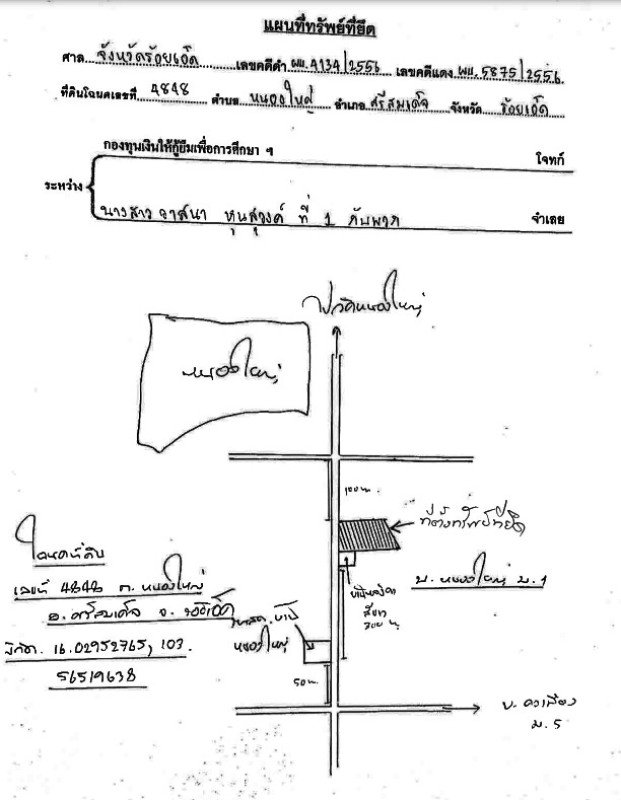 แผนที่ทรัพย์ที่ยึด
ศาล จังหวัดร้อยเอ็ด เลขคดีดำ ผบ.4134/2556 เลขคดีแดง ผบ.5875/2556
ที่ดินโฉนดเลขที่ 4848 ตำบล หนองใหญ่ อำเภอ ศรีสมเด็จ จังหวัด ร้อยเอ็ด
กองทุนเงินให้กู้ยืมเพื่อการศึกษา ฯ โจทก์
ระหว่าง
นางสาว วาสนา หุนสุวงค์ ที่ 1 กับพวก จำเลย
ไปวัดหนองใหญ่
หนองใหญ่
100 ม.
ที่ตั้งทรัพย์ที่ยึด
โฉนดที่ดิน
เลขที่ 4848 ต. หนองใหญ่
อ. ศรีสมเด็จ จ. ร้อยเอ็ด
พิกัด. 16.02952765, 103.
56519638
บ. หนองใหญ่ ม.1
300 ม.
หนองใหญ่
50 ม.
ม. 5